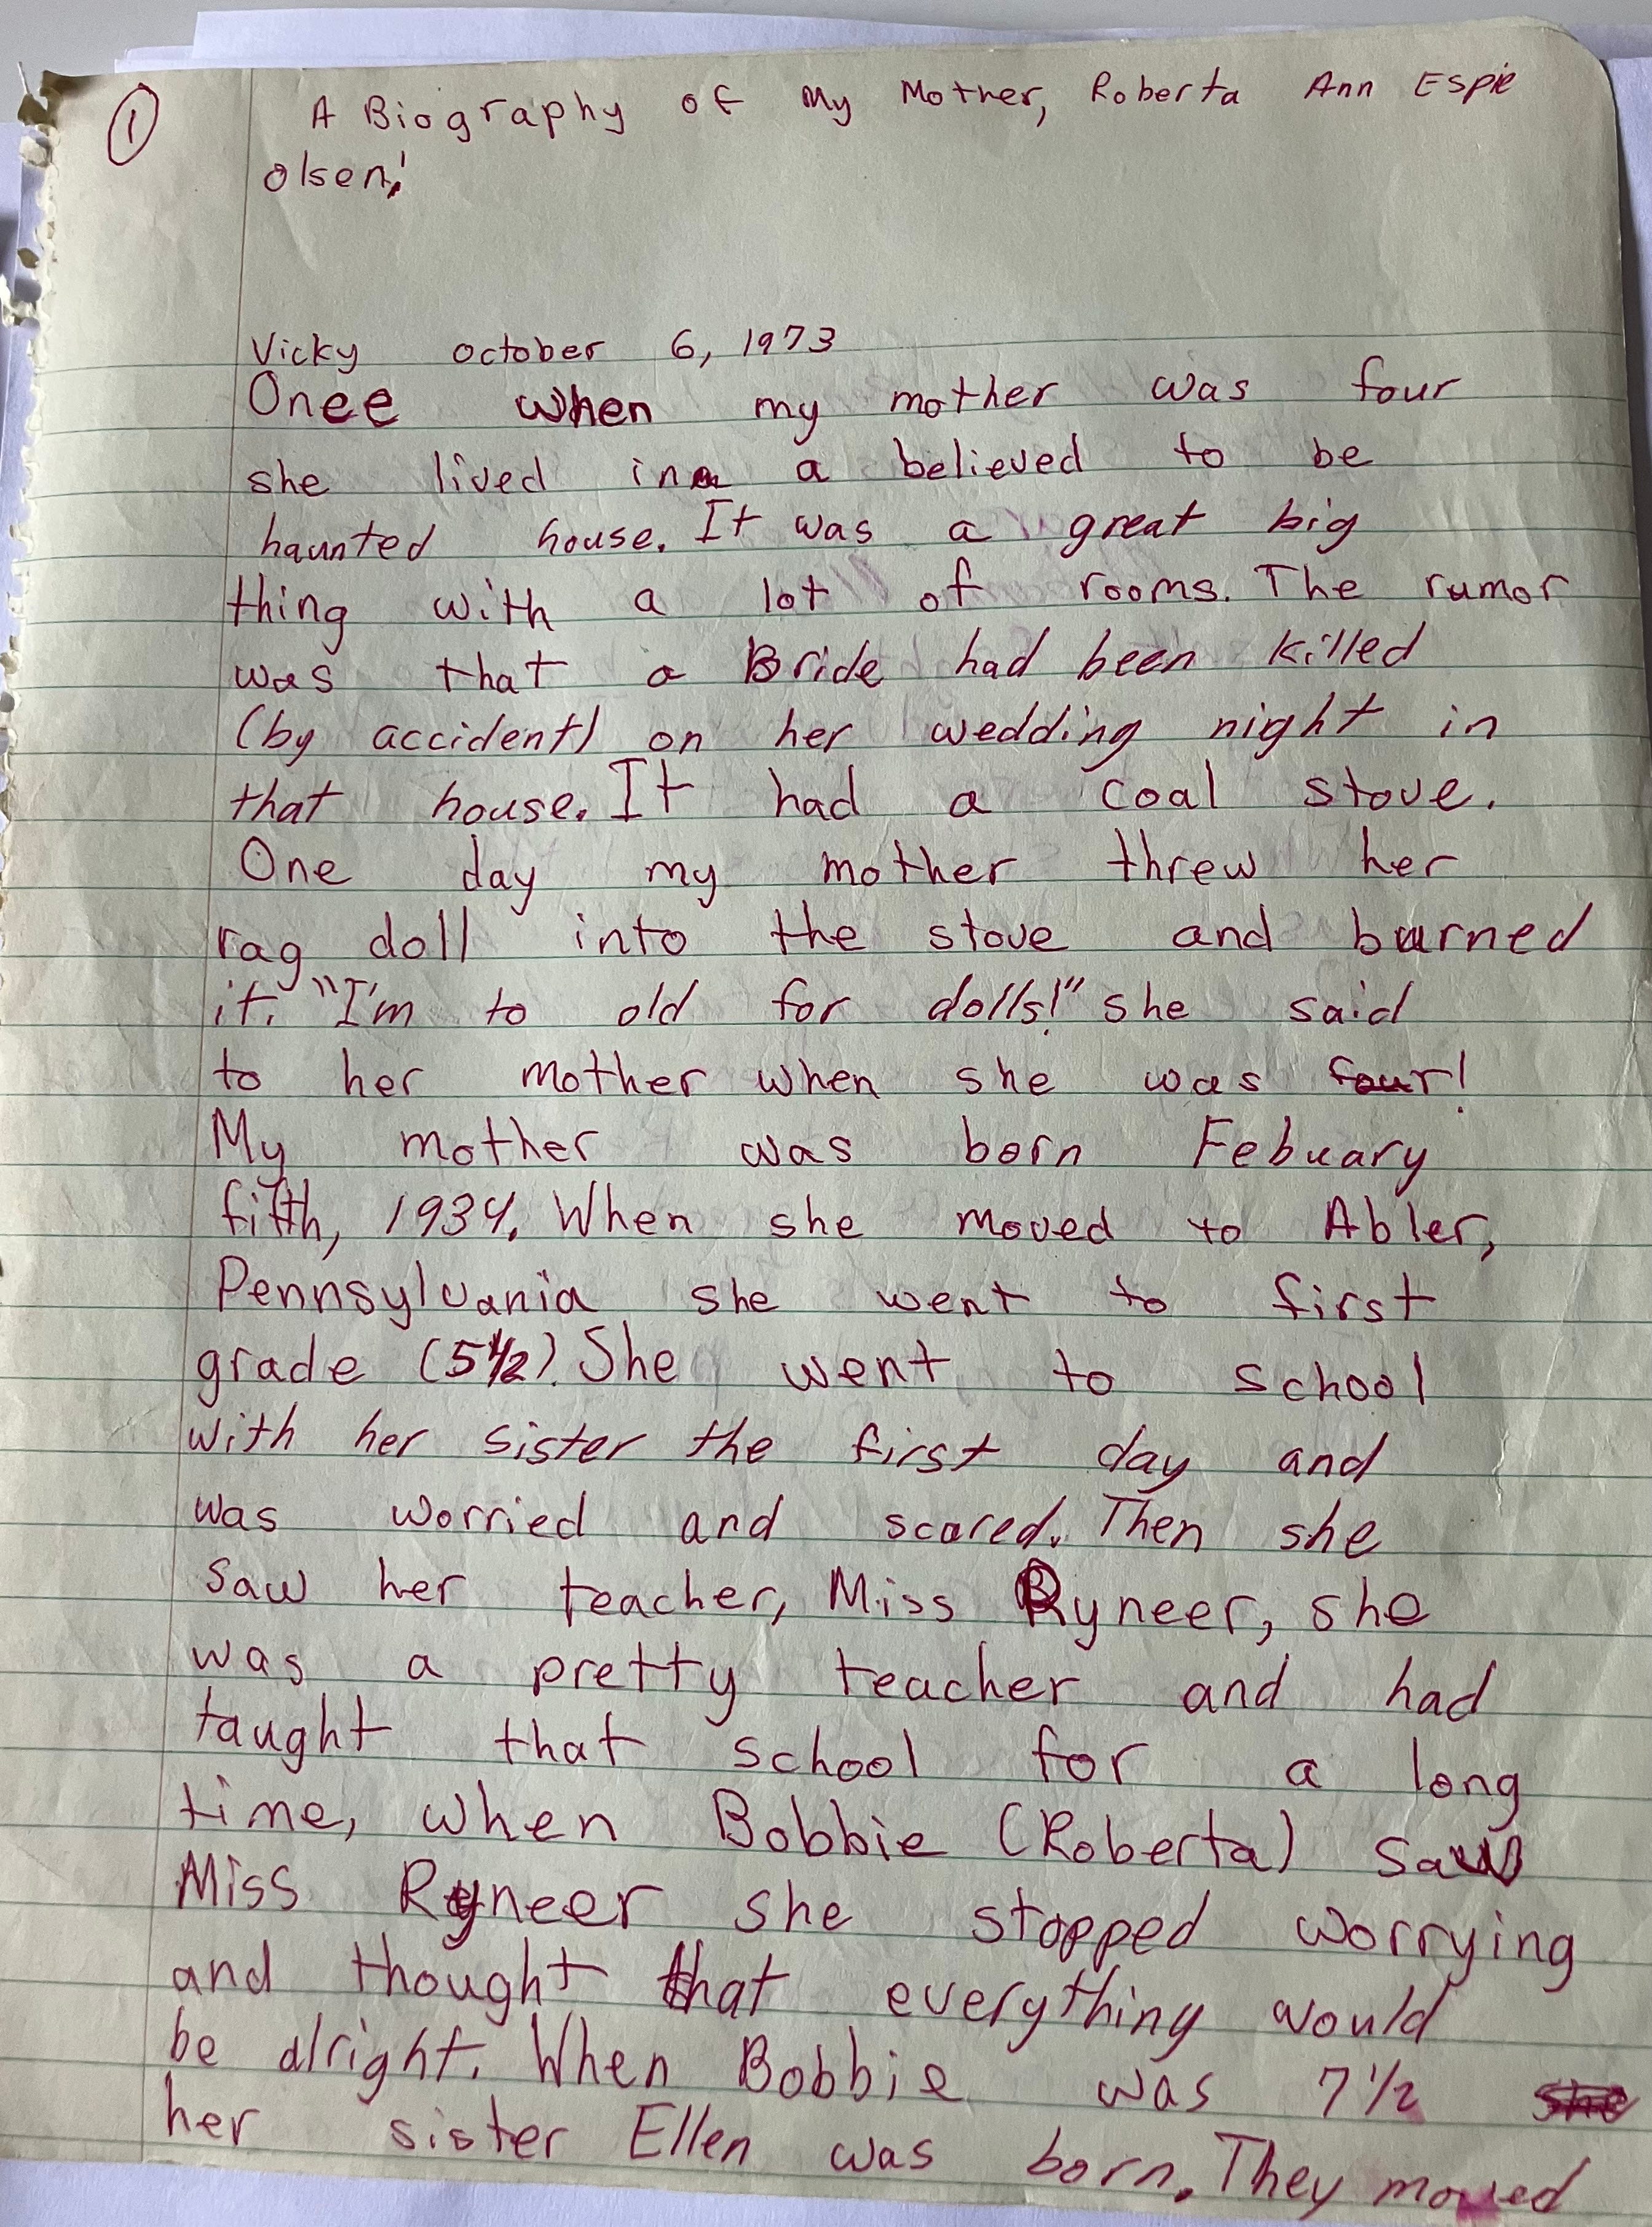 ①
A Biography of My Mother, Roberta Ann Espie
Olsen!
Vicky october 6, 1973
Once when my mother was four
she lived in a believed to be
haunted house. It was a great big
thing with a lot of rooms. The rumor
was that a Bride had been killed
(by accident) on her wedding night in
that house. It had a coal stove.
One day my mother threw her
rag doll into the stove and burned
it. "I'm to old for dolls!" she said
to her mother when she was four!
My mother was born Febuary
fifth, 1934. When she moved to Abler,
Pennsylvania she went to first
grade (5 1/2). She went to school
with her sister the first day and
was worried and scared. Then she
saw her teacher, Miss Ryneer, she
was a pretty teacher and had
taught that school for a long
time, when Bobbie (Roberta) saw
Miss Ryneer she stopped worrying
and thought that everything would
be alright. When Bobbie was 7 1/2 she
her sister Ellen was born. They moved